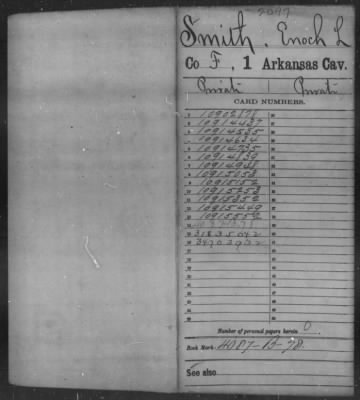 Smith, Enoch L
Co F, 1 Arkansas Cav.
Private | Private
CARD NUMBERS.
1 10902878
2 10914437
3 10914535
4 10914634
5 10914735
6 10914839
7 10914938
8 10915053
9 10915152
10 10915253
11 10915352
12 10915449
13 10915552
15 31835042
16 34703932
Number of personal papers herein 0
Book Mark: 4087-B-78
See also